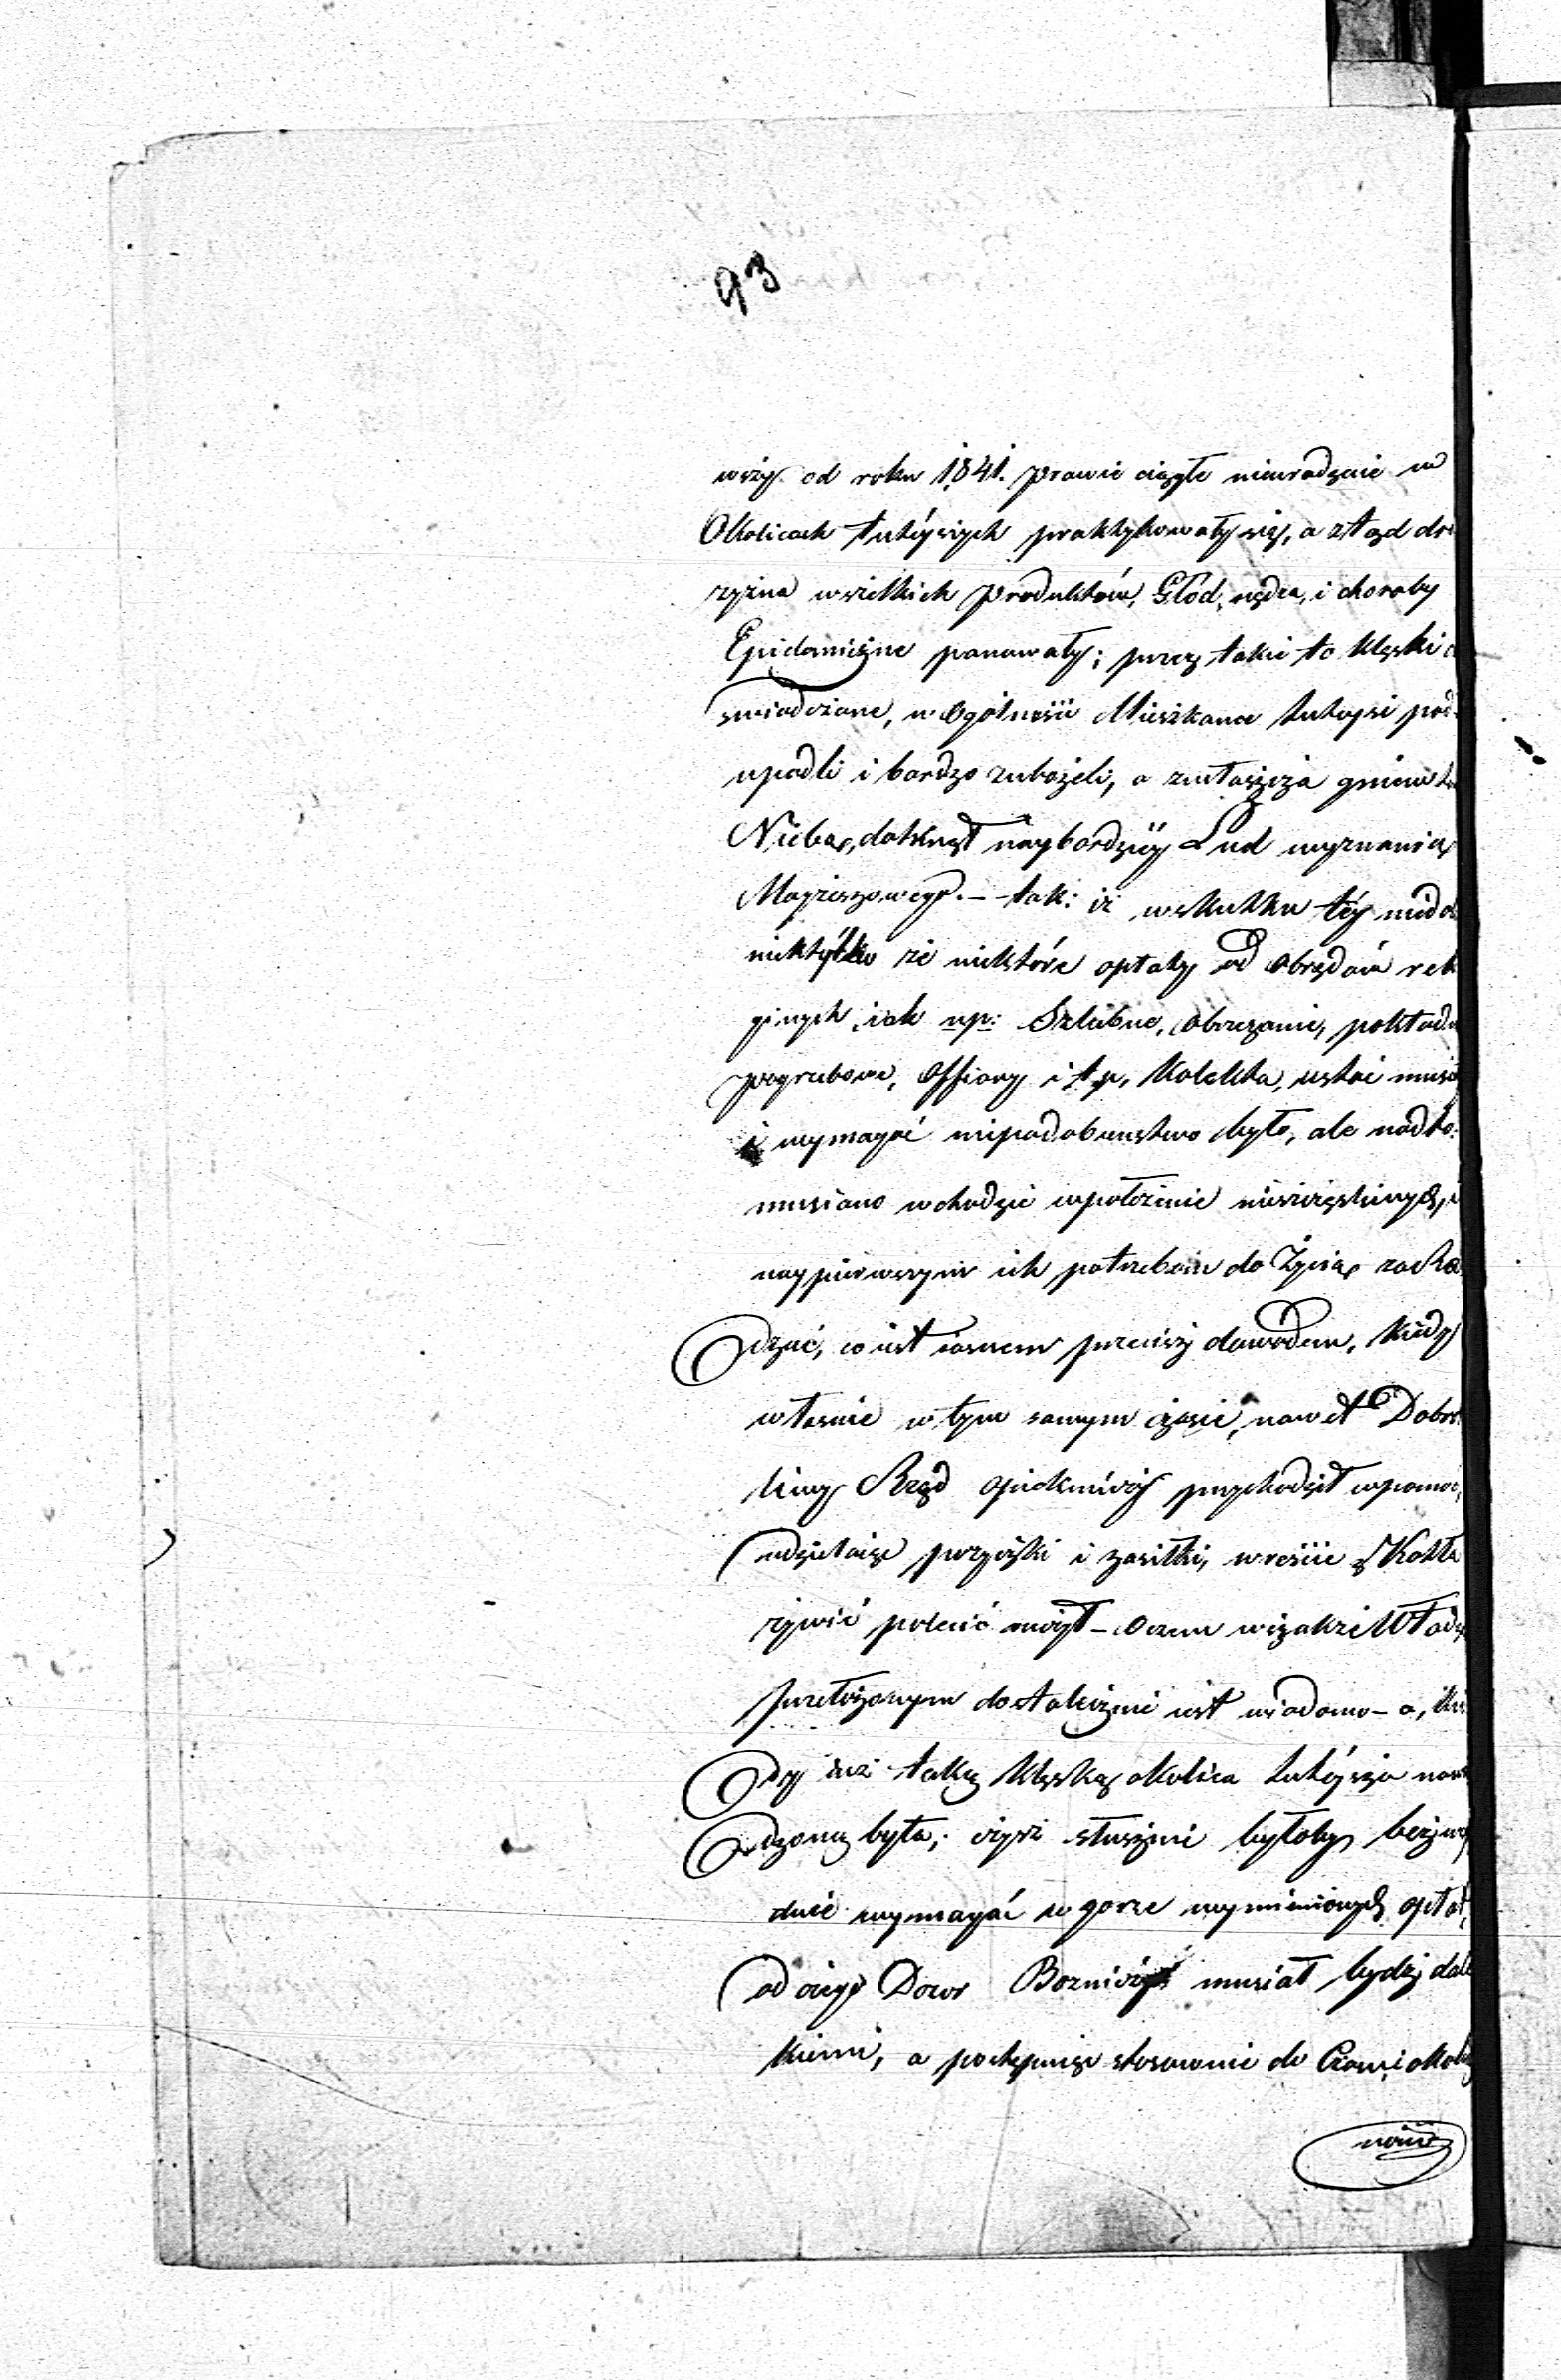 93
wszy od roku 1841. prawie ciągłe nieurodzaie w
Okolicach tutéyszych praktykowały się, a ztąd dro
żyzna wszelkich Produktów, Głód, nędza, i choroby
Epidemiczne panowały; przez takie to klęski
swiadczone, w ogólnosci Mieszkance tutejsi pod-
upadli i bardzo zubożeli, a zwłaszcza gniew
Nieba, dotknął naybardziéy Lud wyznania
Mayżeszowego. — tak: iż wskutku téy
nietylko że niektóre opłaty od obrzędów reli
ginych, iak np: Szlubne, obrzezanie, pokładn
pogrzebowe, Offiary i t. p. Kolekta, ustać musia
i wymagać niepodobenstwo było, ale nadto:
musiano wchodzić wpołożenie nieszczęsliwych, i
naypierwszym ich potrzebom do Życia zara
dzać, co iest iasnem przeciez dowodem, kiedy
własnie w tym samym czasie, nawet Dobro
liwy Rząd opiekunczy przychodził wpomoc,
udzielaiąc pożyczki i zasiłki, wreście z Kotła
żywić polecić raczył — oczem wszakże Władzy
przełożonym dostatecznie iest wiadomo — a,
dy iuż taką klęską okolica tutéysza nawie
dzoną była, czyż słusznie byłoby bezwzglę
dnie wymagać w gorze wymienionych opłat,
od czego Dozor Bozniczy musiał bydź dale
kiemi, a postępuiąc stosownie do Czasu i okoli